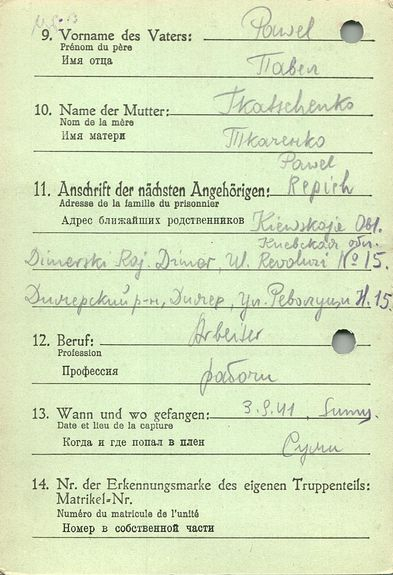 9. Vorname des Vaters: Pawel
Prénom du père
Имя отца Павел
10. Name der Mutter: Tkatschenko
Nom de la mère
Имя матери Ткаченко
Pawel
11. Anschrift der nächsten Angehörigen: Repich
Adresse de la famille du prisonnier
Адрес ближайших родственников Kiewskaja Obl.
Киевская обл.
Dimerski Raj. Dimer, Ul. Revoluzi № 15.
Димерский р-н, Димер, ул. Революции Н. 15.
12. Beruf: Arbeiter
Profession
Профессия рабочи
13. Wann und wo gefangen: 3.9.41, Sumy.
Date et lieu de la capture
Когда и где попал в плен Суми
14. Nr. der Erkennungsmarke des eigenen Truppenteils:
Matrikel-Nr.
Numéro du matricule de l'unité
Номер в собственной части